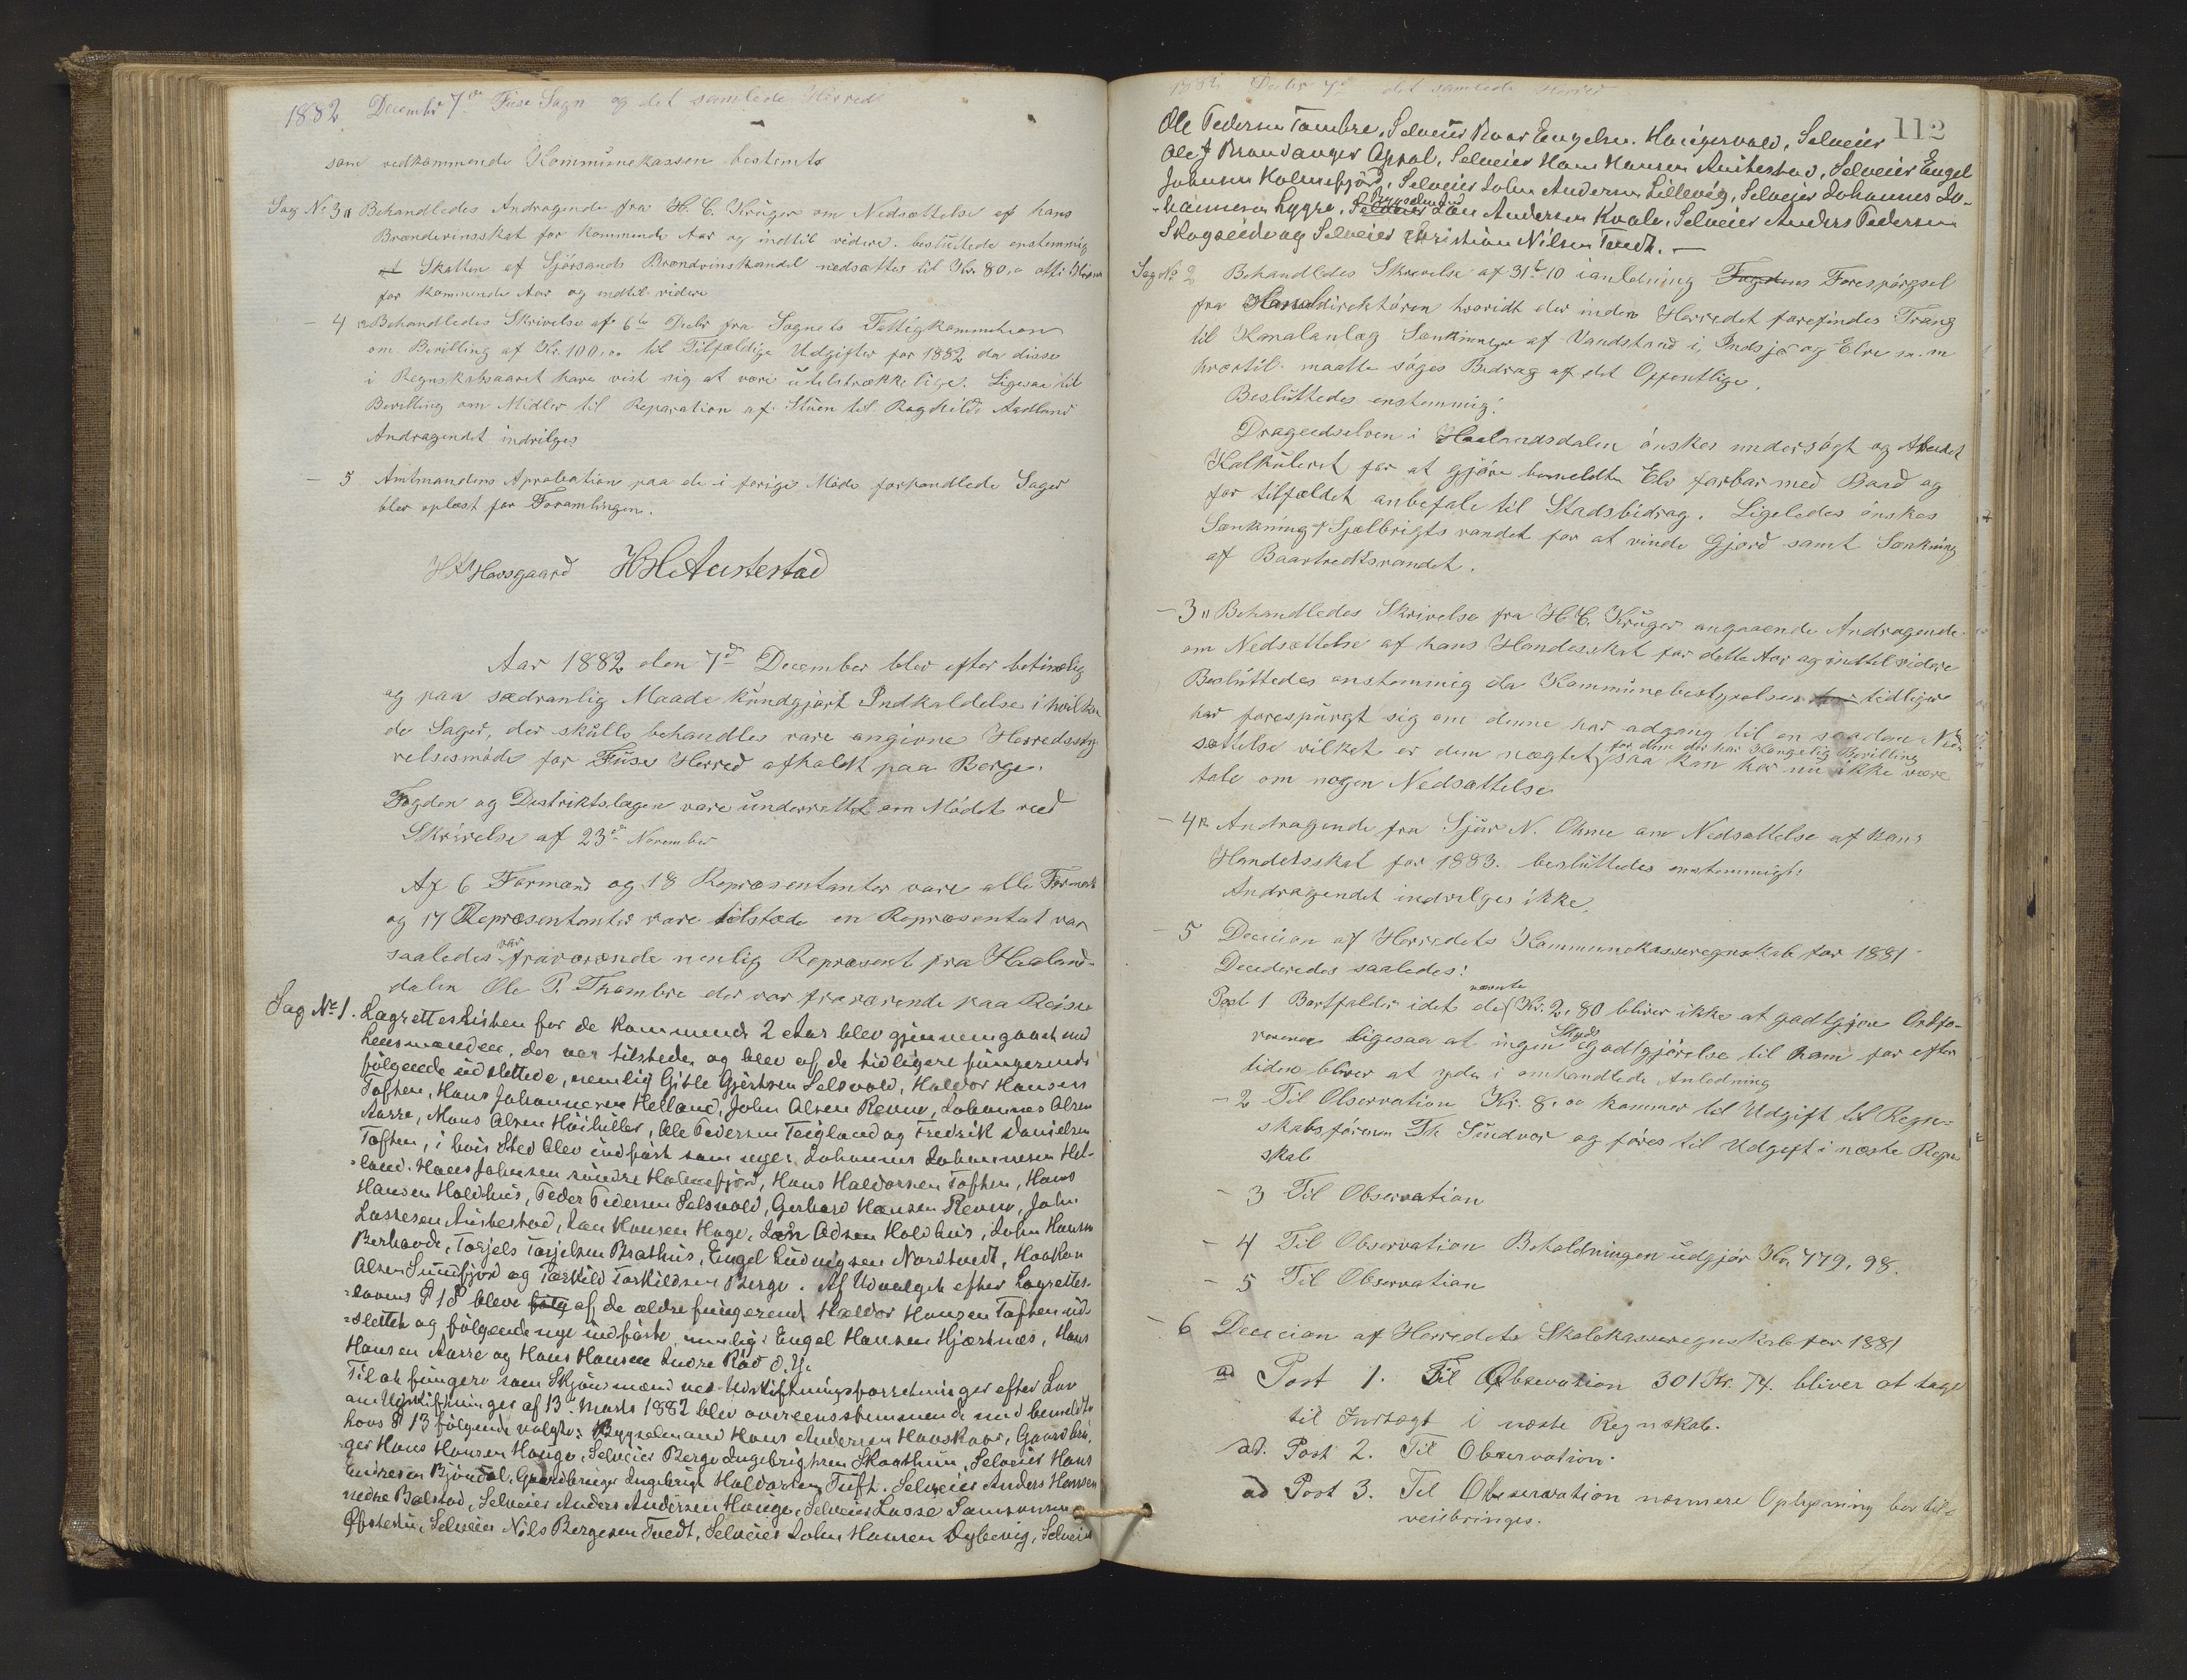 1882 Decembr 7de Fuse Sogn og det samlede Herred
som vedkommende Kommunekassen bestemte
Sag No 3 Behandledes Andragende fra H. C. Krüger om Nedsættelse af hans
Brænderinsskat for kommende Aar og indtil videre. besluttede enstemmig
at Skatten af Sjørsands Brændvinshandel nedsættes til Kr. 80,00 otti Kroner
for kommende Aar og indtil videre
- 4 Behandledes Skrivelse af 6te Decbr fra Sognets Fattigkommission
om Bevilling af Kr. 100,00 til Tilfældige Udgifter for 1882 da disse
i Regnskabsaaret have vist sig at være utilstrækkelige. Ligesaa til
Bevilling om Midler til Reparation af Stuen til Raghilde Aadland
Andragendet indvilges
- 5 Amtmandens Aprobation paa de i forige Møde forhandlede Sager
blev oplæst for Foramlingen.
H Havsgaard HHAustestad
Aar 1882 den 7de December blev efter betimelig
og paa sædvanlig Maade kundgjort Indkaldelse i hvilken
de Sager, der skulle behandles vare angivne Herredssty
relsesmøde for Fuse Herred afholdt paa Berge.
Fogden og Distriktslægen vare underrettet om Mødet ved
Skrivelse af 23de November
Af 6 Formænd og 18 Repræsentanter vare alle Formænd
og 17 Repræsentanter vare tilstede en Repræsentat var
saaledes var fraværende nemlig Repræsent fra Haaland-
dalen Ole P. Thambre der var fraværende paa Reise
Sag No 1. Lagretteslisten for de kommende 2 Aar blev gjennemgaaet med
Lensmanden, der var tilstede, og blev af de tidligere fungerende
følgende udslettede, nemlig Gitle Gjertsen Selsvold, Haldor Hansen
Toften, Hans Johannesen Helland, John Olsen Revne, Johannes Olsen
Aarre, Mons Olsen Høihiller, Ole Pedersen Teigland og Fredrik Danielsen
Toften, i hvis Sted blev indført som nye: Johannes Johannesen Hel-
-land. Hans Johnsen søndre Holmefjord, Hans Haldorsen Toften, Hans
Hansen Holdhus, Peder Pedersen Selsvold, Gerhard Hansen Revne, John
Lassesen Austestad, Lars Hansen Hage, Odsen Holdhus, John Hansen
Berhovde, Torjels Torjelsen Brathus, Engel Ludvigsen Nordtvedt, Haakon
Olsen Sundfjord og Torkild Torkildsen Berge. Af Udvalget efter Lagrettes-
-lovens § 18 bleve følg af de ældre fungerende Haldor Hansen Toften ud-
-slettet og følgende nye indførte, nemlig: Engel Hansen Hjertnæs, Hans
Hansen Aarre og Hans Hansen Indre Rød d. y.
Til at fungere som Skjønsmænd ved Udskiftningsforretninger efter Lov
om Udskiftninger af 13 Marts 1882 blev overeensstemmende med bemeldte
Lovs § 13 følgende valgte: Bygselmand Hans Andersen Havskaar, Gaardbru-
-ger Hans Hansen Hauge, Selveier Berge Ingebrightsen Skaathun, Selveier Hans
Endresen Bjøndal, Gaardbruger Ingebrigt Haldorsen Tuft. Selveier Anders Hansen
nedre Bolstad, Selveier Anders Andersen Hauge, Selveier Lasse Samsonsen
Øfstethu, Selveier Nils Bergesen Tvedt, Selveier John Hansen Dybevig, Selveier
1882 Decbr 7de det samlede Herred
112
Ole Pedersen Tombre, Selveier Roar Engelsen Haugervold, Selveier
Ole J Brandanger Opsal, Selveier Hans Hansen Austestad, Selveier Engel
Johnsen Holmefjord, Selveier John Andersen Lillevig, Selveier Johannes Jo-
-hannesen Lygre, Selveier Bygselmand Andersen Kvale, Selveier Anders Pedersen
Skogseide og Selveier Christian Nilsen Tvedt. -
Sag No 2 Behandledes Skrivelse af 31te 10 i anledning Fogdens Forespørgsel
fra Kanaldirektøren hvoridt der inden Herredet forefindes Trang
til Kanalanlæg Sænkninger af Vandstand i Indsjø og Elve m. m
hvortil maatte søges Bidrag af det Offentlige.
Besluttedes enstemmig:
Drageidselven i Haalandsdalen ønskes undersøgt og Arbeidet
Kalkuleret for at gjøre bemeldte Elv farbar med Baad og
for tilfældet anbefale til Stadsbidrag. Ligeledes ønskes
Sænkning af Sjælbrigts vandet for at vinde Gjord samt Sænkning
af Baartvedtsvandet.
- 3 Behandledes Skrivelse fra H. C. Krüger angaaende Andragende
om Nedsættelse af hans Handesskat for dette Aar og indtil videre
Besluttedes enstemmig da Kommunebestyrelsen har tidligere
har forespørgt sig om denne har adgang til en saadan Ned
sættelse vilket er dem nægtet for dem der har Kongelig Bevilling saa kan her nu ikke være
tale om nogen Nedsættelse
- 4 Andragende fra Sjur N. Ohme om Nedsættelse af hans
Handelsskat for 1883. besluttedes enstemmigt:
Andragendet indvilges ikke.
- 5 Decision af Herredets Kommunekasseregnskab for 1881
Decideredes saaledes:
Post 1 Bortfalder idet de nævnte Kr. 2,80 bliver ikke at godtgjøre Ordfø-
reren ligesaa at ingen Skyds Godtgjørelse til ham for efter
tiden bliver at yde i omhandlede Anledning
- 2 Til Observation Kr. 8,00 kommer til Udgift til Regn-
skabsføreren Th Sundvor og føres til Udgift i næste Regn
skab
- 3 Til Observation
- 4 Til Observation Beholdningen udgjør Kr. 779,98.
- 5 Til Observation
- 6 Decision af Herredets Skolekasseregnskab for 1881
ad Post 1. Til Observation 301 Kr. 74. bliver at tage
til Indtægt i næste Regnskab.
ad. Post 2. Til Observation.
ad Post 3. Til Observation nærmere Oplysning bør til-
veiebringes.